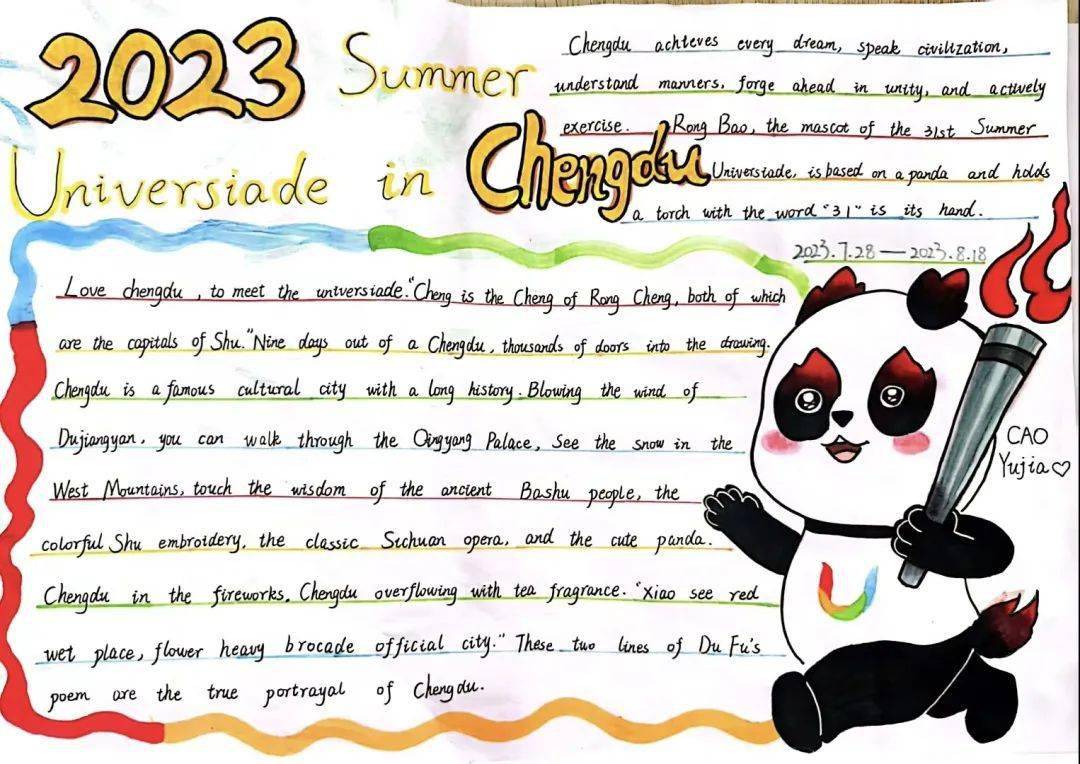 2023 Summer
Universiade in Chengdu
Chengdu achieves every dream, speak civilization,
understand manners, forge ahead in unity, and actively
exercise. Rong Bao, the mascot of the 31st Summer
Universiade, is based on a panda and holds
a torch with the word "31" is its hand.
2023.7.28—2023.8.18
Love chengdu, to meet the universiade."Cheng is the Cheng of Rong Cheng, both of which
are the capitals of Shu."Nine days out of a Chengdu, thousands of doors into the drawing.
Chengdu is a famous cultural city with a long history. Blowing the wind of
Dujiangyan, you can walk through the Qingyang Palace, See the snow in the
West Mountains, touch the wisdom of the ancient Bashu people, the
colorful Shu embroidery, the classic Sichuan opera, and the cute panda.
Chengdu in the fireworks, Chengdu overflowing with tea fragrance. "Xiao see red
wet place, flower heavy brocade official city." These two lines of Du Fu's
poem are the true portrayal of Chengdu.
CAO
Yujia